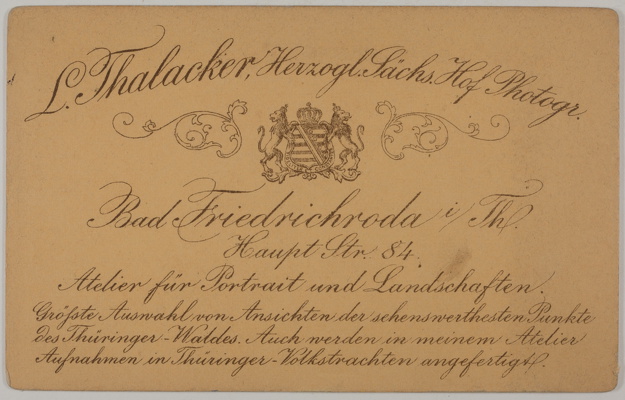 L. Thalacker, Herzogl. Sächs. Hof Photogr.
Bad Friedrichroda i/ Th.
Haupt Str. 84.
Atelier für Portrait und Landschaften.
Größte Auswahl von Ansichten der sehenswerthesten Punkte
des Thüringer-Waldes. Auch werden in meinem Atelier
Aufnahmen in Thüringer-Volkstrachten angefertigt.